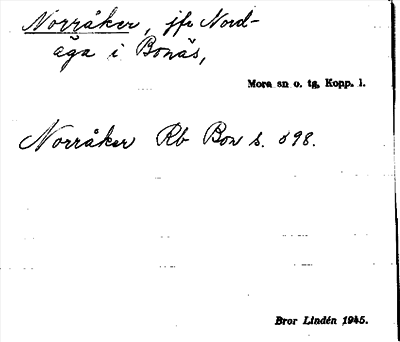 Norråker, jfr Nord-
åga i Bonäs,
Mora sn o. tg, Kopp. l.
Norråker Rb Bon s. 898.
Bror Lindén 1945.